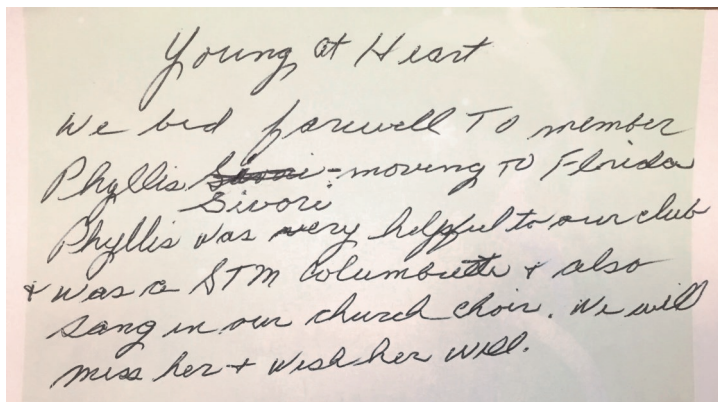 Young at Heart
We bid farewell To member
Phyllis Sivori - moving to Florida
Sivori
Phyllis was very helpful to our club
& was a STM Columbiette & also
sang in our church choir. We will
miss her & wish her well.